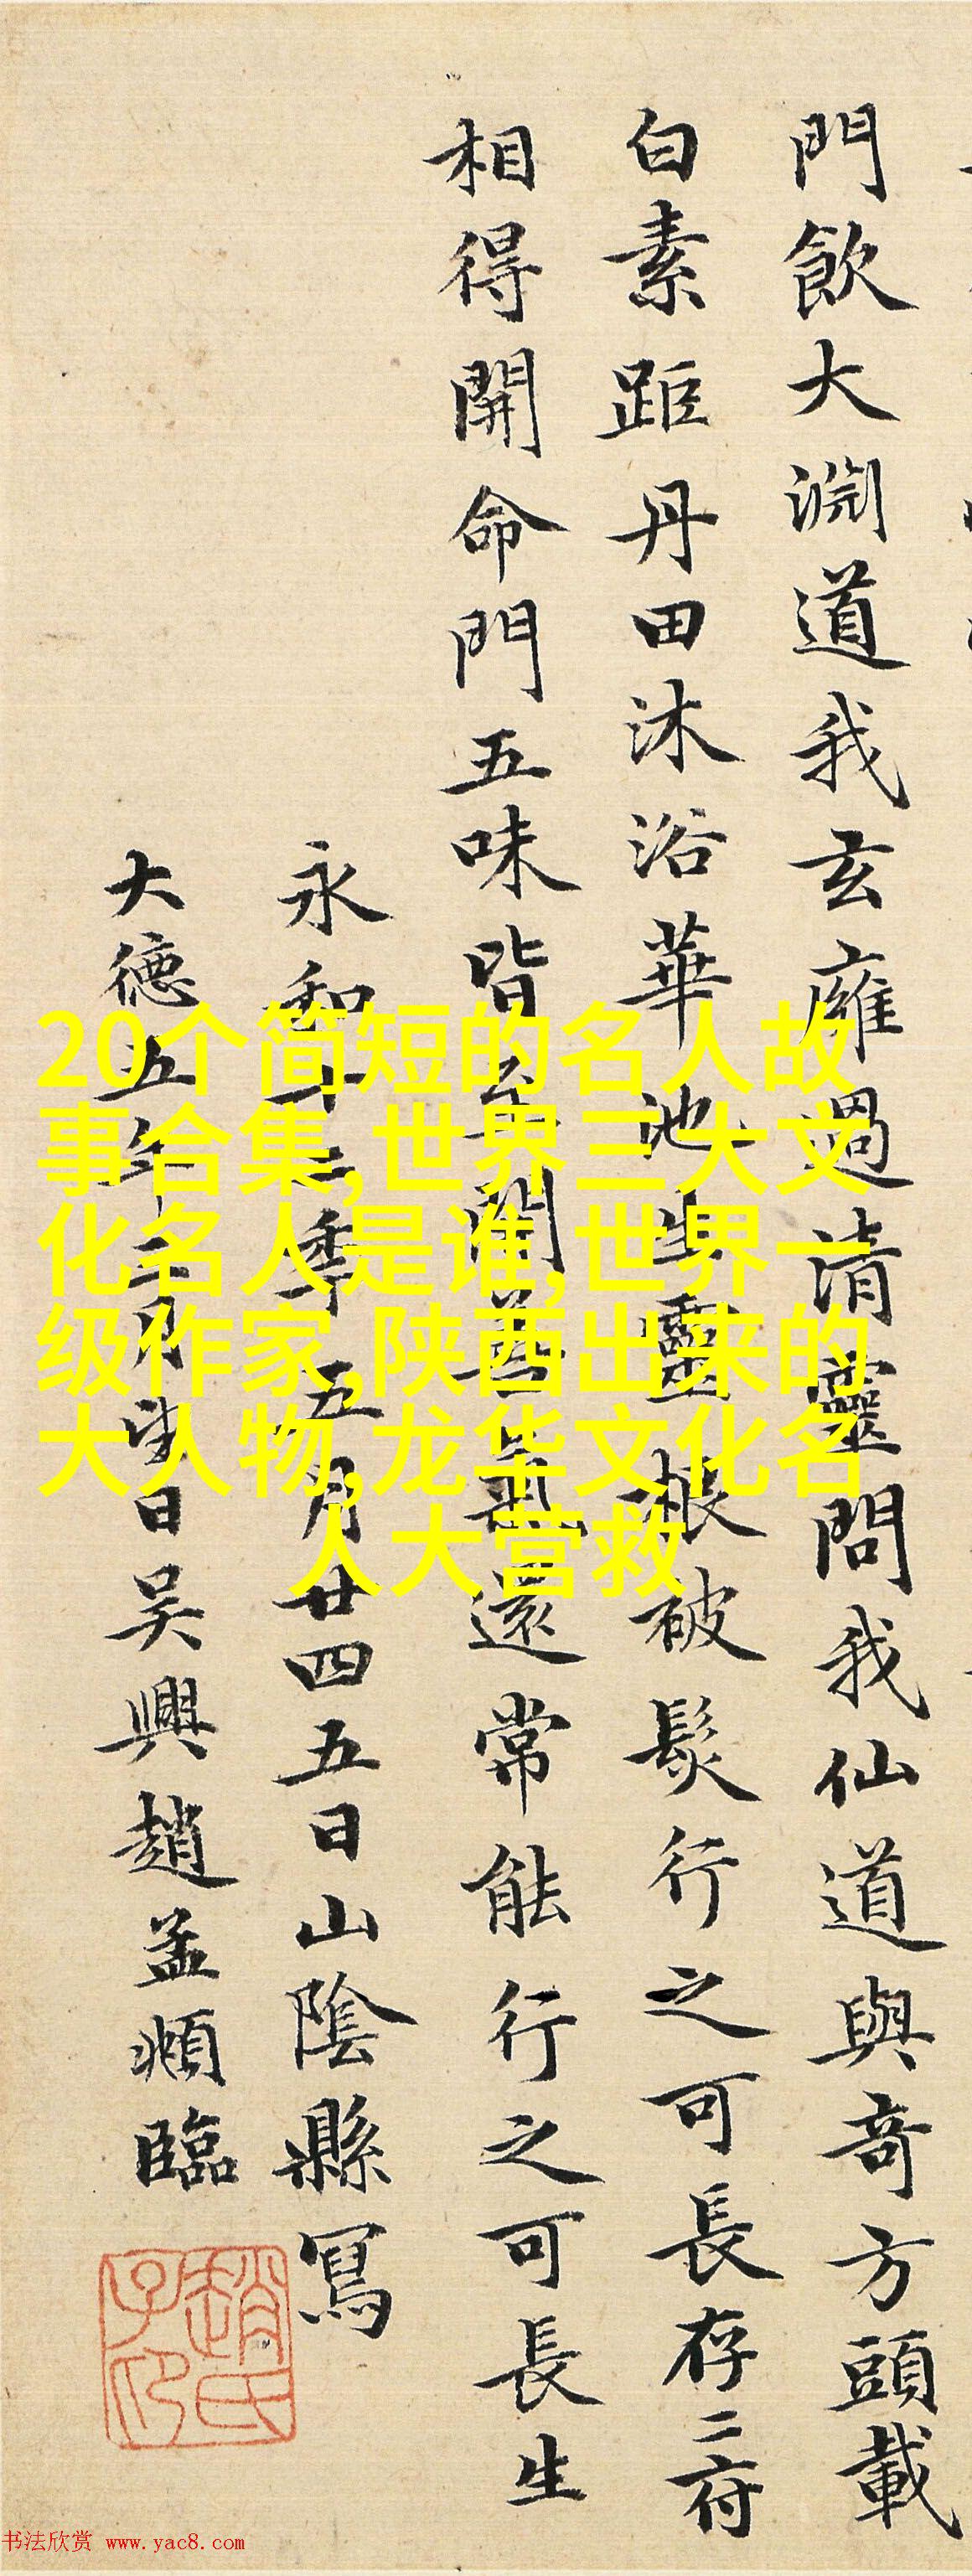 門飲大淵道我玄雍過清靈問我仙道與竒方頭載
白素距丹田沐浴華池生靈根被髮行之可長存二府
相得開命門五味皆至開善氣還常能行之可長生
永和十二年五月廿四五日山陰縣寫
大德五年十二月望日吴興趙孟頫臨
趙氏子昂
20个简短的名人故
事合集,世界三大文
化名人是谁,世界一
级作家,陕西出来的
大人物,龙华文化名
人大营救
书法欣赏 www.yac8.com